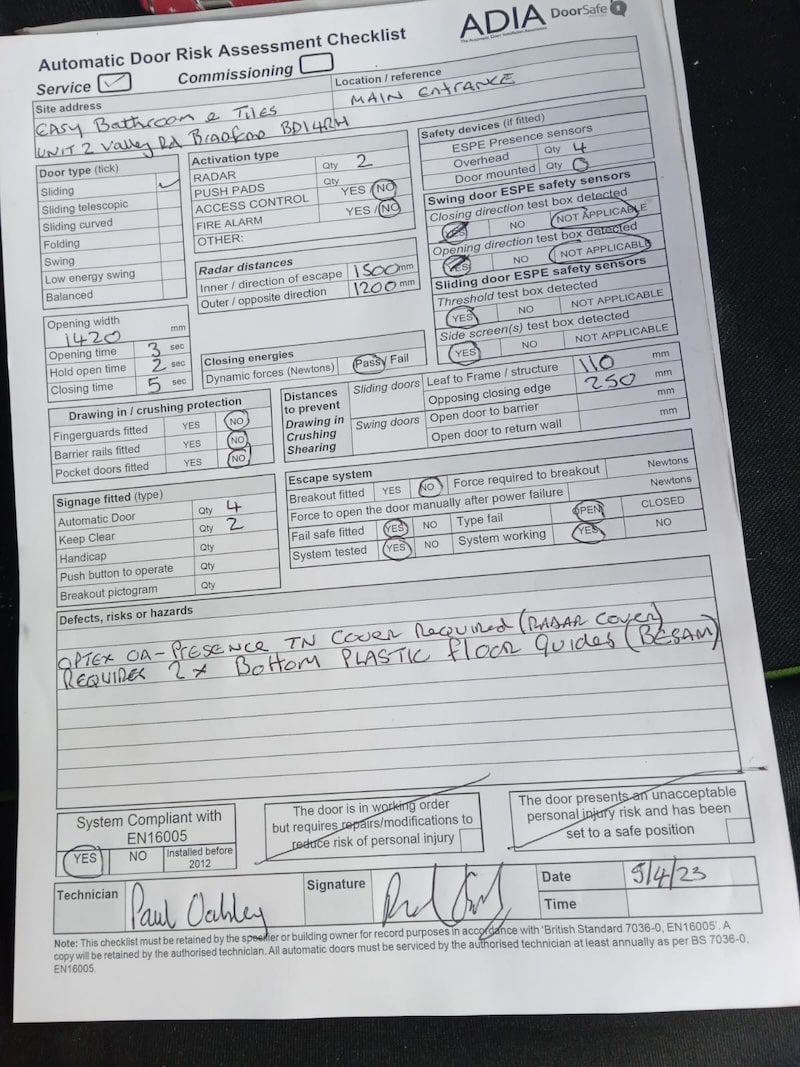 Automatic Door Risk Assessment Checklist
ADIA DoorSafe
The Automatic Door Installation Association
Service ✓ Commissioning
Site address
EASY Bathroom & TILES
UNIT 2 Valley Rd Bradford BD1 4RH
Location / reference
MAIN ENTRANCE
Door type (tick)
Sliding ✓
Sliding telescopic
Sliding curved
Folding
Swing
Low energy swing
Balanced
Activation type
RADAR Qty 2
PUSH PADS Qty
ACCESS CONTROL YES / NO
FIRE ALARM YES / NO
OTHER:
Radar distances
Inner / direction of escape 1500 mm
Outer / opposite direction 1200 mm
Safety devices (if fitted)
ESPE Presence sensors
Overhead Qty 4
Door mounted Qty 0
Swing door ESPE safety sensors
Closing direction test box detected
YES NO NOT APPLICABLE
Opening direction test box detected
YES NO NOT APPLICABLE
Sliding door ESPE safety sensors
Threshold test box detected
YES NO NOT APPLICABLE
Side screen(s) test box detected
YES NO NOT APPLICABLE
Opening width
1420 mm
Opening time 3 sec
Hold open time 2 sec
Closing time 5 sec
Closing energies
Dynamic forces (Newtons) Pass / Fail
Drawing in / crushing protection
Fingerguards fitted YES NO
Barrier rails fitted YES NO
Pocket doors fitted YES NO
Distances to prevent Drawing in Crushing Shearing
Sliding doors Leaf to Frame / structure 110 mm
Opposing closing edge 250 mm
Swing doors Open door to barrier mm
Open door to return wall mm
Signage fitted (type)
Automatic Door Qty 4
Keep Clear Qty 2
Handicap Qty
Push button to operate Qty
Breakout pictogram Qty
Escape system
Breakout fitted YES NO Force required to breakout Newtons
Force to open the door manually after power failure Newtons
Fail safe fitted YES NO Type fail OPEN CLOSED
System tested YES NO System working YES NO
Defects, risks or hazards
OPTEX OA-PRESENCE TN COVER Required (RADAR COVER)
REQUIRES 2 x Bottom PLASTIC floor Guides (BESAM)
System Compliant with
EN16005
YES NO Installed before 2012
The door is in working order
but requires repairs/modifications to
reduce risk of personal injury
The door presents an unacceptable
personal injury risk and has been
set to a safe position
Technician Paul Oakley Signature Date 5/4/23
Time
Note: This checklist must be retained by the specifier or building owner for record purposes in accordance with 'British Standard 7036-0, EN16005'. A
copy will be retained by the authorised technician. All automatic doors must be serviced by the authorised technician at least annually as per BS 7036-0,
EN16005.